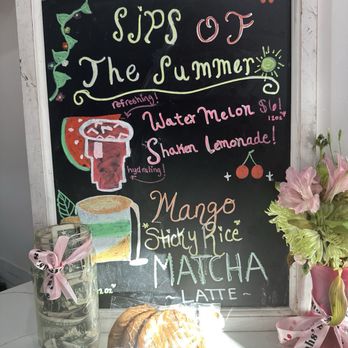 Sips OF
The Summer
refreshing!
Water Melon $6!
12oz
Shaken Lemonade!
hydrating!
Mango
12oz
Sticky Rice
MATCHA
~ LATTE ~